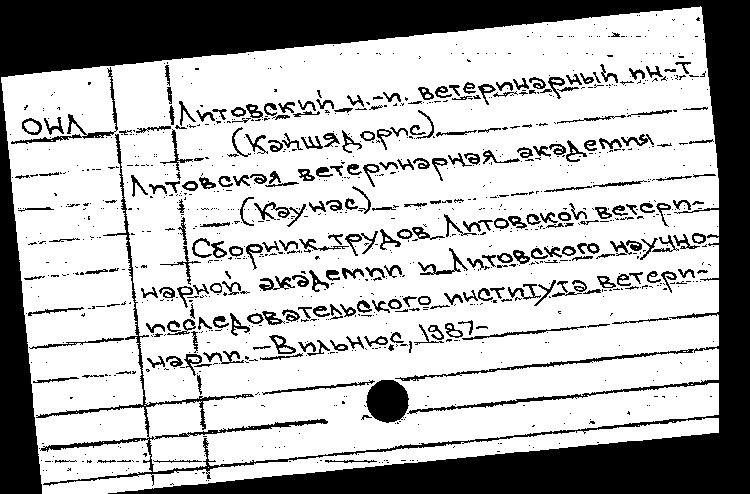 Литовский н.-и. ветеринарный ин-т
ОНЛ
(Кайшядорис)
Литовская ветеринарная академия
(Каунас)
Сборник трудов Литовской ветери-
нарной академии и Литовского научно-
исследовательского института ветери-
нарии. – Вильнюс, 1987-